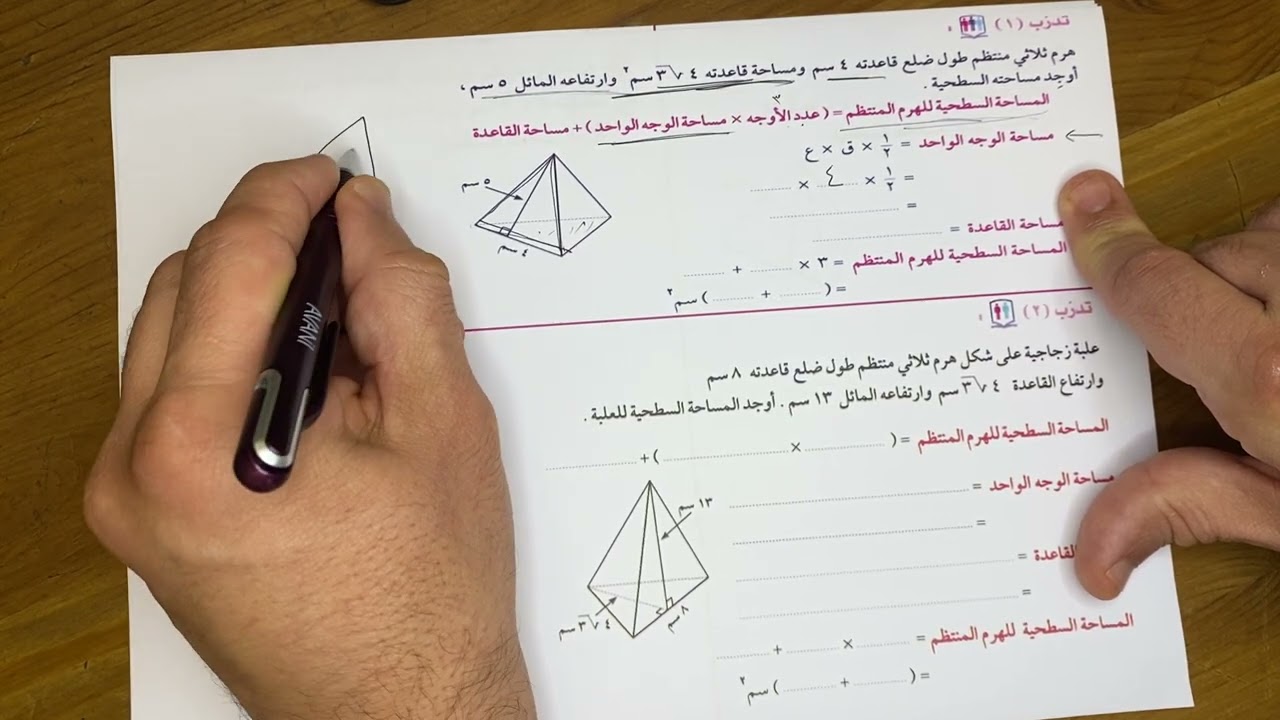 تدرّب (١) :
هرم ثلاثي منتظم طول ضلع قاعدته ٤ سم ومساحة قاعدته ٤√٣ سم٢ وارتفاعه المائل ٥ سم ،
أوجِد مساحته السطحية .
المساحة السطحية للهرم المنتظم = (عدد الأوجه × مساحة الوجه الواحد) + مساحة القاعدة
٣
مساحة الوجه الواحد = ١/٢ × ق × ع
= ١/٢ × ٤ × ..........
= ..........
مساحة القاعدة = ..........
المساحة السطحية للهرم المنتظم = ٣ × .......... + ..........
= ( .......... + .......... ) سم٢
٥ سم
٤ سم
تدرّب (٢) :
علبة زجاجية على شكل هرم ثلاثي منتظم طول ضلع قاعدته ٨ سم
وارتفاع القاعدة ٤√٣ سم وارتفاعه المائل ١٣ سم . أوجد المساحة السطحية للعلبة .
المساحة السطحية للهرم المنتظم = ( .......... × .......... ) + ..........
مساحة الوجه الواحد = ..........
= ..........
القاعدة = ..........
= ..........
المساحة السطحية للهرم المنتظم = .......... × .......... + ..........
= ( .......... + .......... ) سم٢
١٣ سم
٨ سم
٤√٣ سم
AVANI